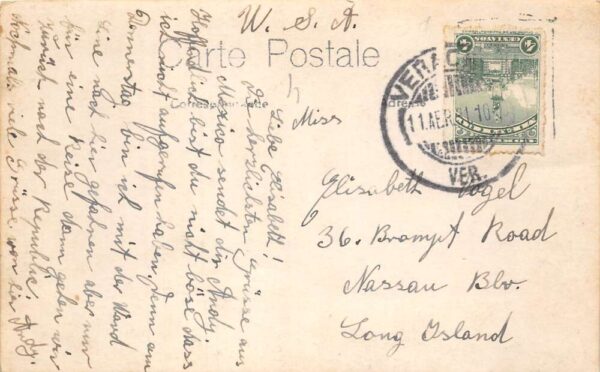 U. S. A.
Carte Postale
Correspondance
Adresse
Liebe Elisabeth!
Die herzlichsten Grüsse aus
Mexico sendet dir Andy.
Hoffentlich bist du nicht böse dass
ich nicht aufgerufen haben, denn am
Donnerstag bin ich mit der Ward
Line nach hier gefahren aber nur
für eine Reise dann gehen wir
zurück nach der Republic.
Nochmals viele Grüsse von hier Andy.
VERAC
11 ABR
VER.
4
4
Miss
Elisabeth Vogel
36. Brompt Road
Nassau Blv.
Long Island